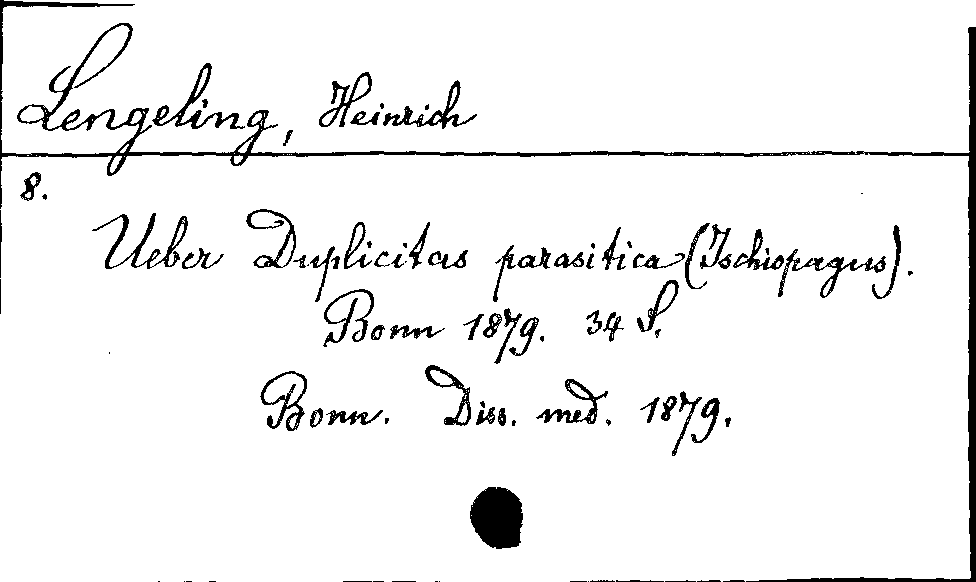 Lengeling, Heinrich
8.
Ueber Duplicitas parasitica (Ischiopagus).
Bonn 1879. 34 S.
Bonn. Diss. med. 1879.